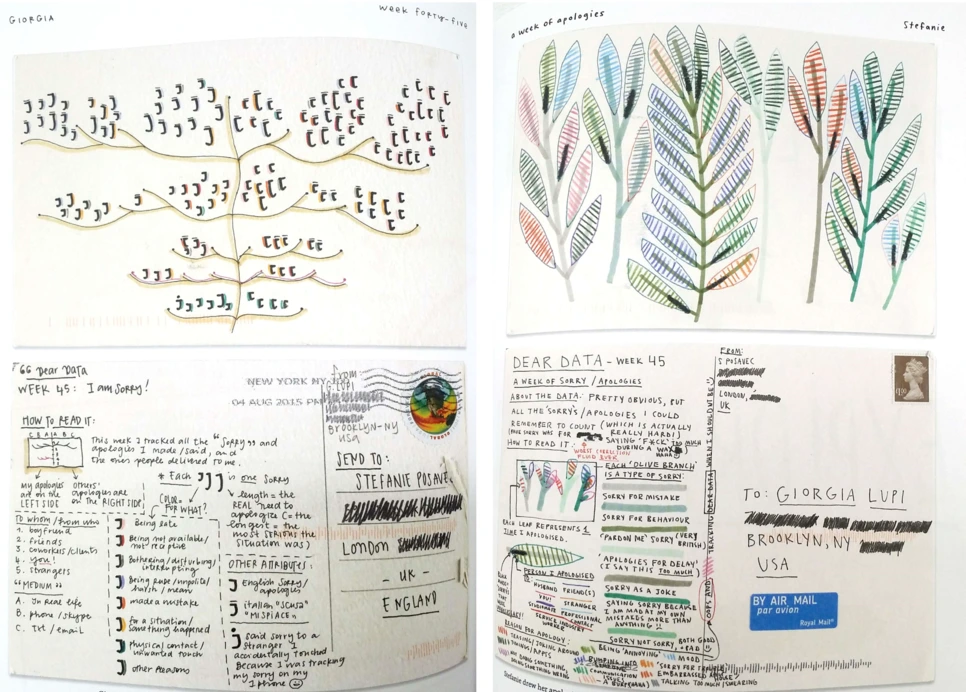 GIORGIA
WEEK FORTY-FIVE
a week of apologies
Stefanie
Dear Data
WEEK 45: I am SORRY!
HOW TO READ IT:
This week I tracked all the "Sorry"s and
apologies I made / said, and
the ones people delivered to me.
My apologies
are on the
LEFT SIDE
Others'
apologies are
on the RIGHT SIDE
* Each
is one Sorry
COLOR =
FOR WHAT?
length = the
REAL "need to
apologize (= the
longest = the
most serious the
situation was)
TO whom / from who
1. boyfriend
2. friends
3. coworkers/clients
4. you!
5. strangers
"MEDIUM"
A. In real life
B. phone / skype
C. Txt / email
Being late
Being not available/
not receptive
Bothering / disturbing /
interrupting
Being rude / impolite/
harsh / mean
made a mistake
for a situation /
something happened
physical contact/
unwanted touch
other reasons
OTHER ATTRIBUTES:
English Sorry/
apologies
italian "SCUSA"
"MI SPIACE"
said sorry to a
stranger I
accidentally touched
Because I was tracking
my sorry on my
iphone
NEW YORK NY 100
04 AUG 2015 PM
FROM
G. LUPI
BROOKLYN-NY
USA
SEND TO:
STEFANIE POSAVEC
LONDON
- UK -
ENGLAND
DEAR DATA - WEEK 45
A WEEK OF SORRY / APOLOGIES
ABOUT THE DATA: PRETTY OBVIOUS, BUT
ALL THE 'SORRY'S / APOLOGIES I COULD
REMEMBER TO COUNT (WHICH IS ACTUALLY
REALLY HARD!)
HOW TO READ IT:
WORST CORRECTION
FLUID EVER
EACH 'OLIVE BRANCH'
IS A TYPE OF SORRY:
SORRY FOR MISTAKE
SORRY FOR BEHAVIOUR
'PARDON ME' SORRY (VERY
BRITISH)
'APOLOGIES FOR DELAY'
(I SAY THIS TOO MUCH)
SORRY AS A JOKE
SAYING SORRY BECAUSE
I AM MAD AT MY OWN
MISTAKES MORE THAN
ANYTHING
SORRY NOT SORRY
EACH LEAF REPRESENTS 1
TIME I APOLOGISED.
PERSON I APOLOGISED
HUSBAND
FRIEND(S)
YOU!
STRANGER
PROFESSIONAL
CONTACT
SERVICE INDUSTRY
REASON FOR APOLOGY:
TEASING / JOKING AROUND
BEING 'ANNOYING'
MOOD
BUMPING INTO
SOMEONE
DOING SOMETHING WRONG
COMMUNICATION
TALKING TOO MUCH / SWEARING
FROM:
S POSAVEC
LONDON,
UK
TO: GIORGIA LUPI
BROOKLYN, NY
USA
BY AIR MAIL
par avion
Royal Mail
Stefanie drew her